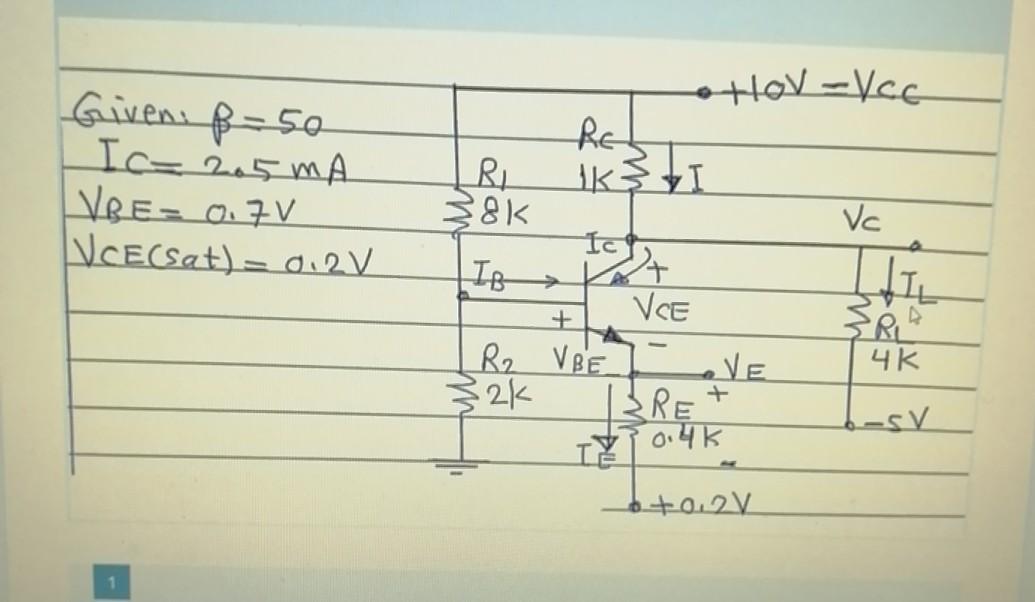 Given: β = 50
IC = 2.5 mA
VBE = 0.7V
VCE(sat) = 0.2V
+10V = VCC
RC
1K
I
R1
8K
VC
IC
IB
+
VCE
IL
+
RL
4K
R2
2K
VBE
-
VE
+
RE
0.4K
-5V
IE
-
+0.2V
1